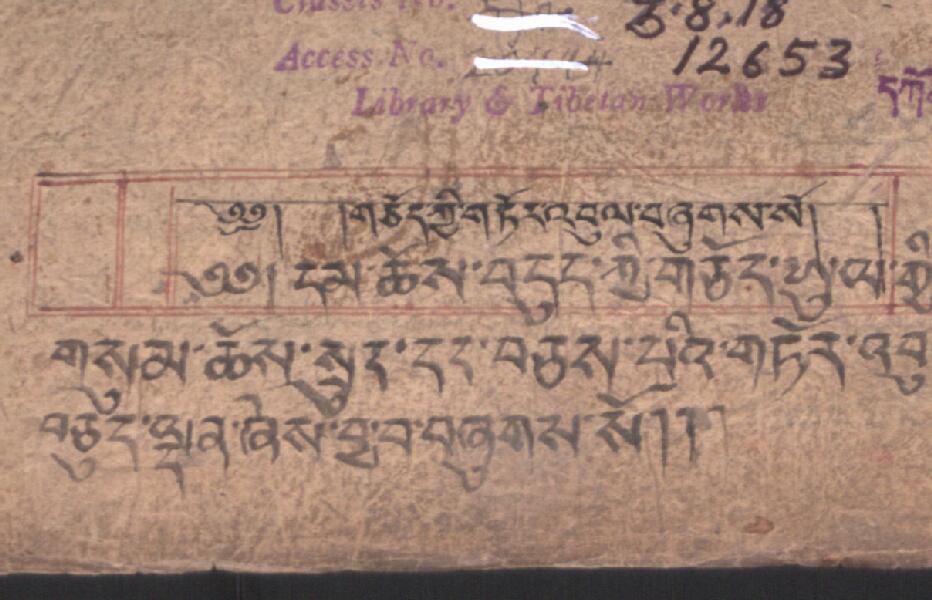 Classis No. ཅ.8.18
Access No. 12653
Library & Tibetan Works
༄༅། །གཅོད་ཀྱི་གཏོར་འབུལ་བཞུགས་སོ། །
༄༅། དམ་ཆོས་བདུད་ཀྱི་གཅོད་ཡུལ་གྱི
གསུམ་ཆོས་སྲུང་དང་བཅས་པའི་གཏོར་འབུ
བཅུད་ལྡན་ཞེས་བྱ་བ་བཞུགས་སོ།།